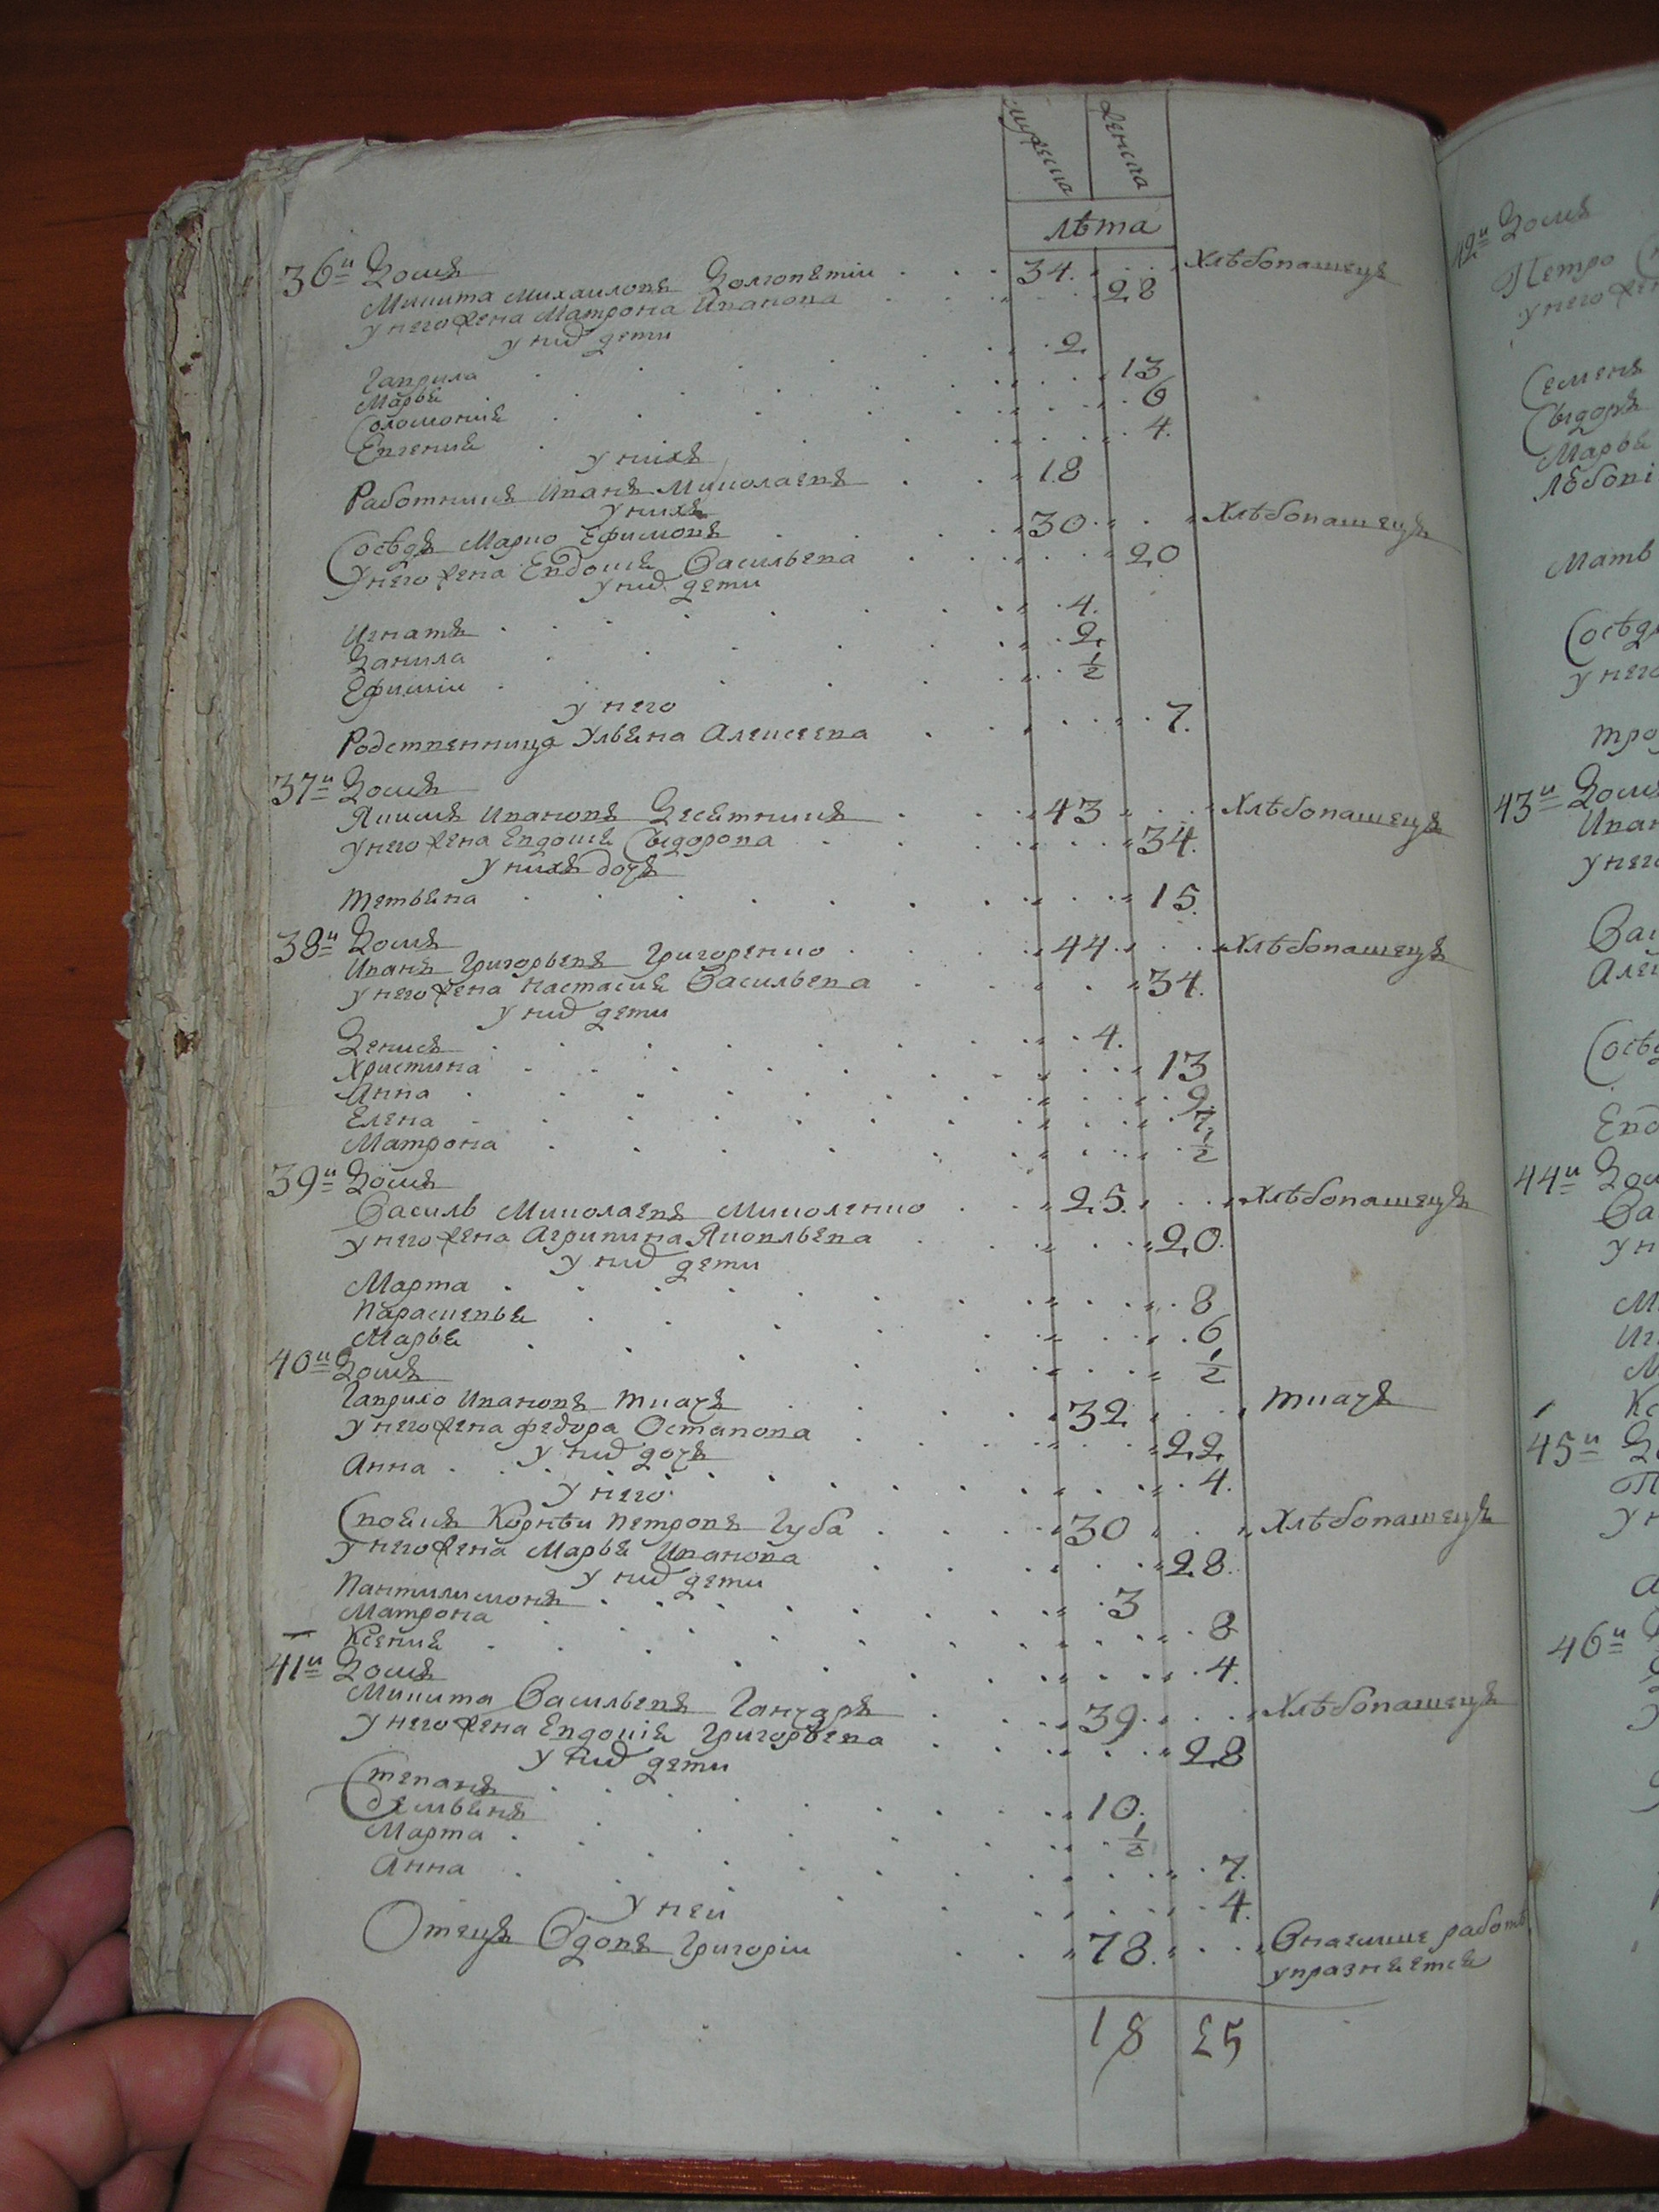 мужеска женска
лѣта
36й Домъ
Микита Михаиловъ Долгопятій 34. Хлѣбопашецъ
у него жена Матрона Иванова 28
у них дети
Гаврила 2
Марья 13
Соломонія 6
Евгения 4.
у нихъ
Работникъ Иванъ Миколаевъ 18
у нихъ
Сосѣдъ Марко Ефимовъ 30. Хлѣбопашецъ
У него жена Евдокия Васильева 20
у них дети
Игнатъ 4.
Данила 2
Ефимій 1/2
у него
Родственница Ульяна Алексеева 7.
37й Домъ
Якимъ Ивановъ Десятникъ 43 Хлѣбопашецъ
у него жена Евдокия Сыдорова 34.
у нихъ дочь
Тетьяна 15.
38й Домъ
Иванъ Григорьевъ Григоренко 44. Хлѣбопашецъ
у него жена Настасия Васильева 34.
у них дети
Денисъ 4.
Христина 13
Анна 9.
Елена 7.
Матрона 1/2
39й Домъ
Василь Миколаевъ Миколенко 25. Хлѣбопашецъ
у него жена Агрипина Яковльева 20.
у них дети
Марта 8
Парасковья 6
Марья 1/2
40й Домъ
Гаврило Ивановъ Ткачъ 32 Ткачъ
у него жена Федора Остапова 22
у них дочь
Анна 4.
у него
Своякъ Корнѣи Петровъ Губа 30 Хлѣбопашецъ
у него жена Марья Иванова 28.
у них дети
Пантилимонъ 3
Матрона 8
Ксения 4.
41й Домъ
Микита Васильевъ Ганчаръ 39. Хлѣбопашецъ
у него жена Евдокія Григорьева 28
у них дети
Степанъ 10.
Демьянъ 1/2
Марта 7.
Анна 4.
у неи
Отецъ Вдовъ Григорій 78. Внаемше работѣ
упразняется
18 25
12й Домъ
Петро
у него жен
Семенъ
Сыдоръ
Марья
Любові
Мать
Сосѣд
у него
43й Домъ
Иван
у него
Сосѣ
44й Дом
45й
46й